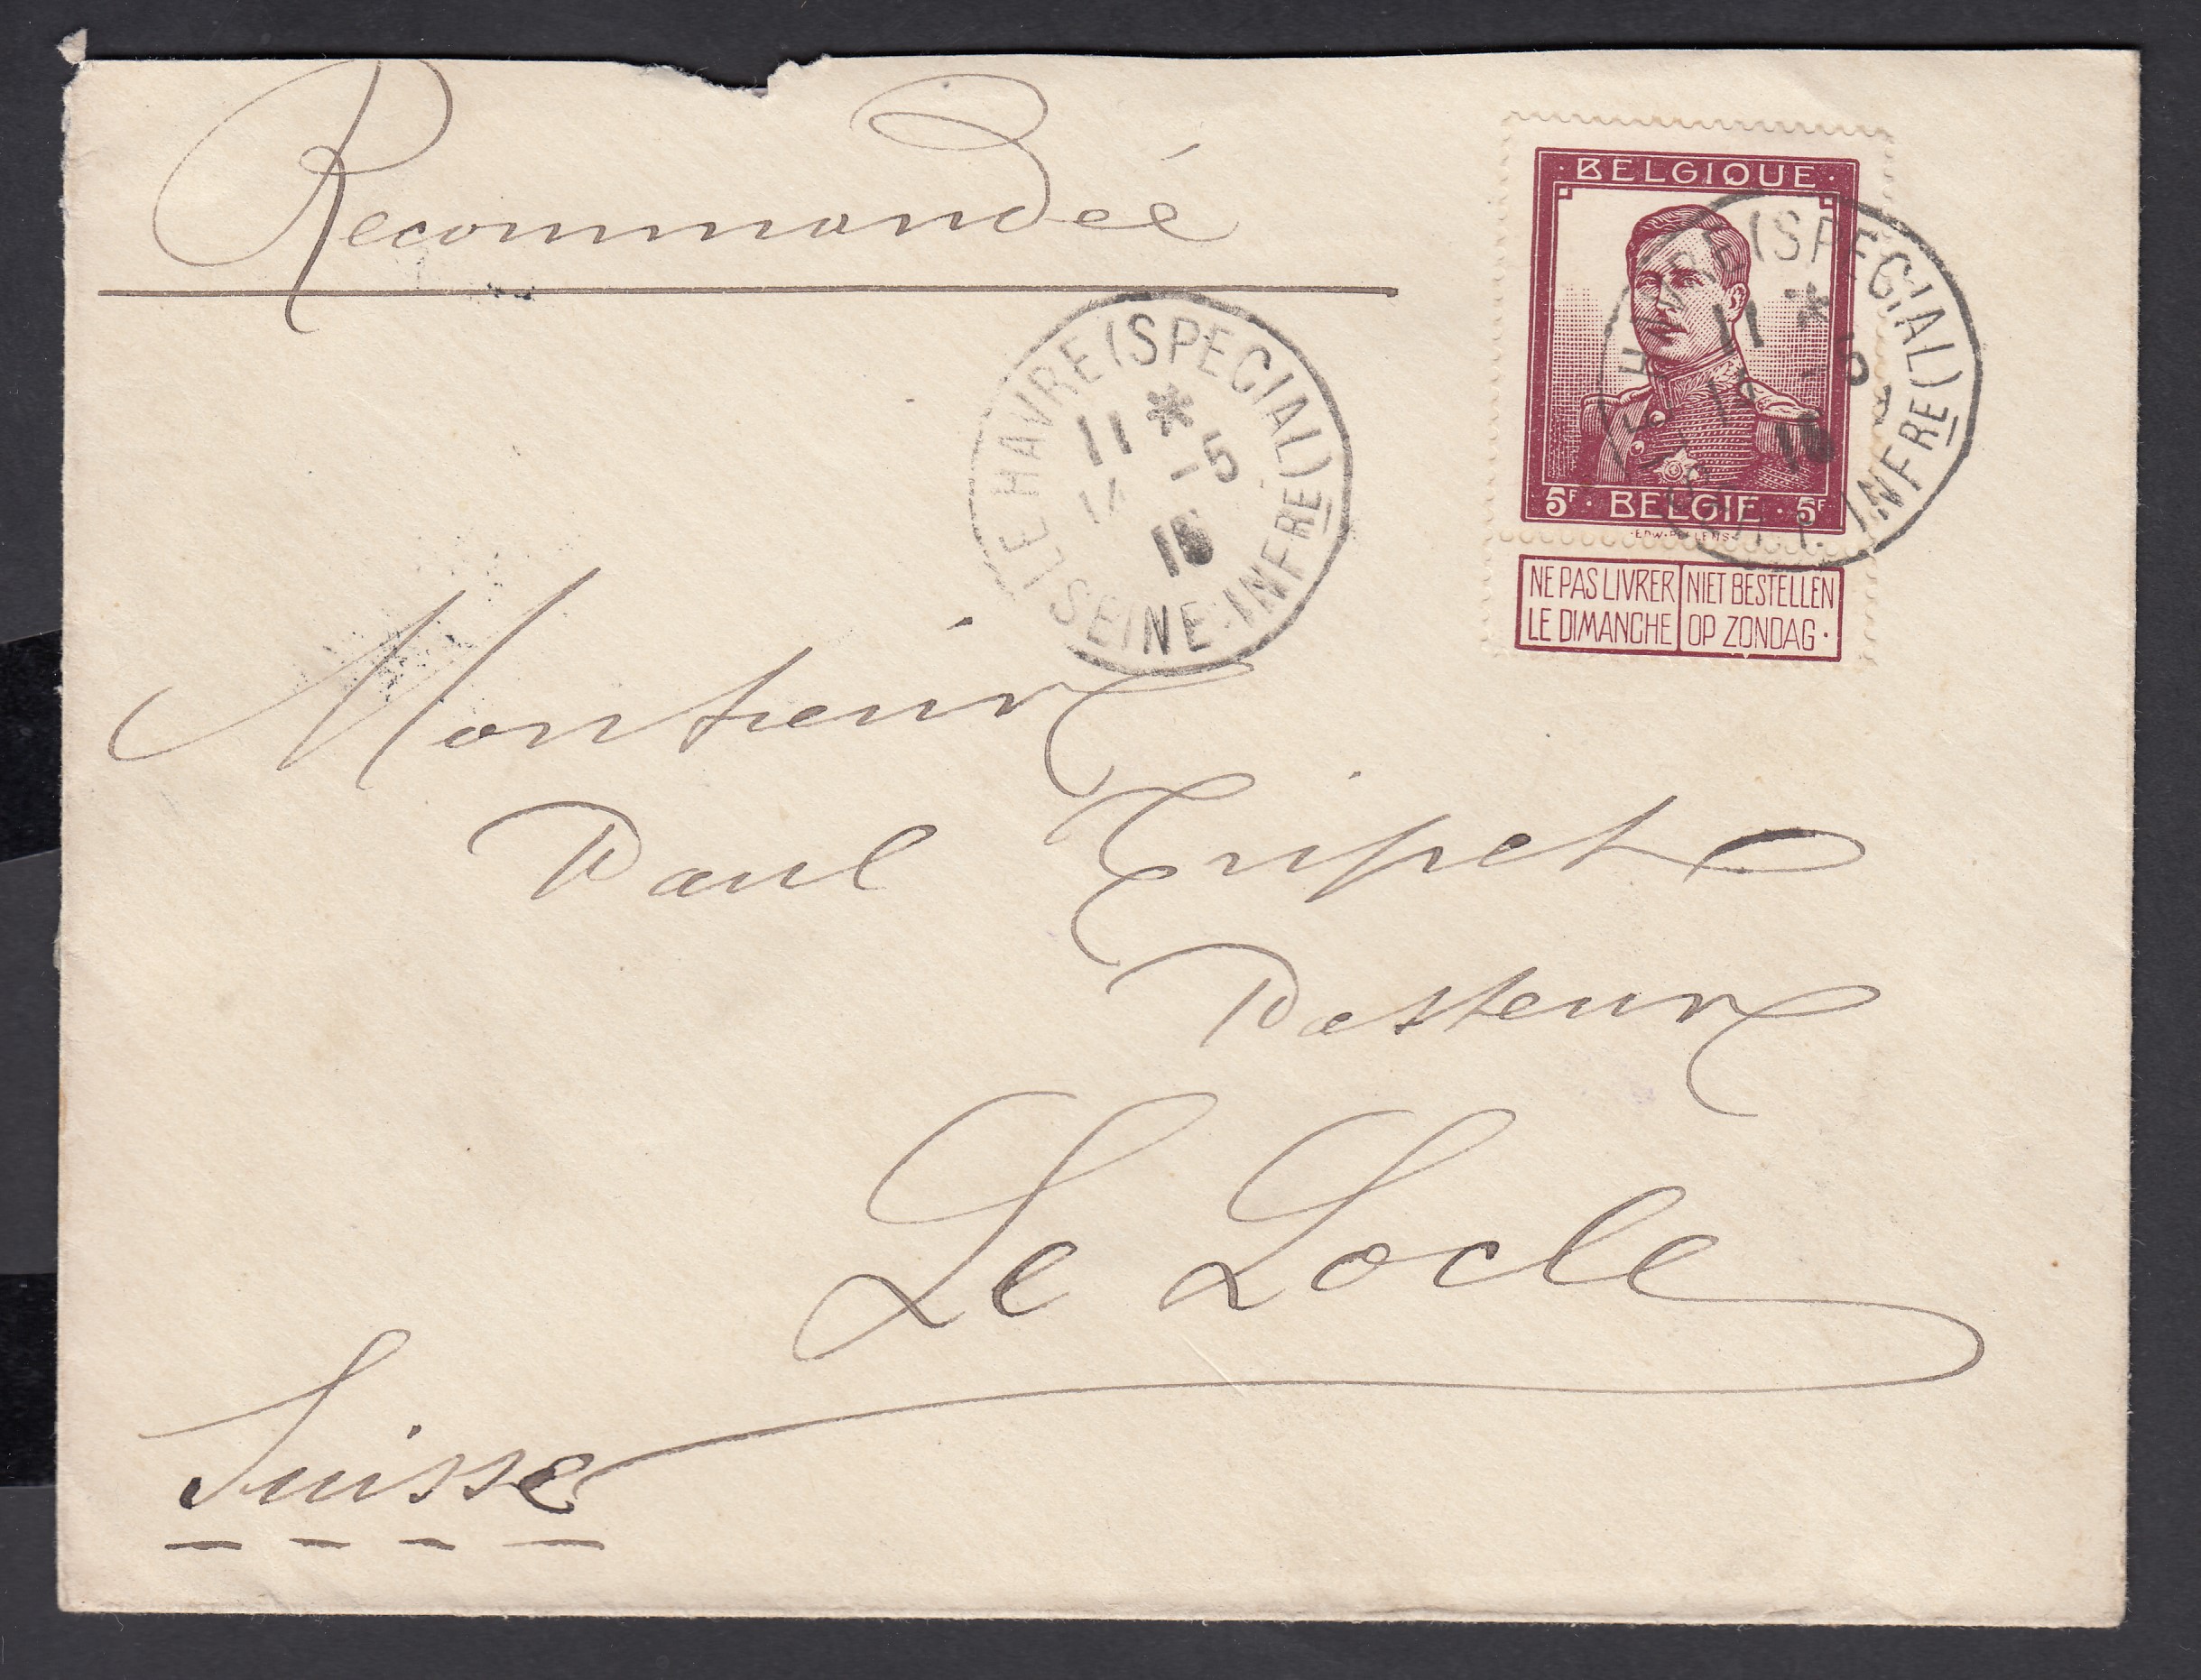 Recommandée
·BELGIQUE·
5F · BELGIE · 5F
NE PAS LIVRER LE DIMANCHE
NIET BESTELLEN OP ZONDAG·
LE HAVRE (SPECIAL)
11 *
-5
SEINE-INFRE
LE HAVRE (SPECIAL)
11 *
-5
INFRE
Monsieur
Paul Tripet
Pasteur
Le Locle
Suisse